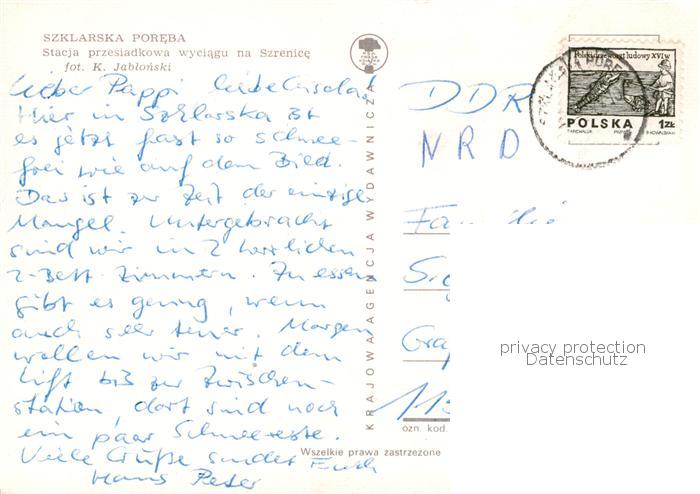 SZKLARSKA PORĘBA
Stacja przesiadkowa wyciągu na Szrenicę
fot. K. Jabłoński
Lieber Pappi liebe
Hier in Szklarska ist
es jetzt fast so schnee-
frei wie auf dem Bild.
Das ist zur Zeit der einzige
Mangel. Untergebracht
sind wir in 2 herrlichen
2-Bett-Zimmern. Zu essen
gibt es genug, wenn
auch sehr teuer. Morgen
wollen wir mit dem
Lift bis zur Zwischen-
station, dort sind noch
ein paar Schneereste.
Viele Grüße sendet Euch
Hans Peter
KRAJOWA AGENCJA WYDAWNICZA
DDR
NRD
Famili
Sieg
Gra
113
ozn. kod.
Wszelkie prawa zastrzeżone
Polski drzeworyt ludowy XVI w
POLSKA 1 ZŁ
privacy protection
Datenschutz